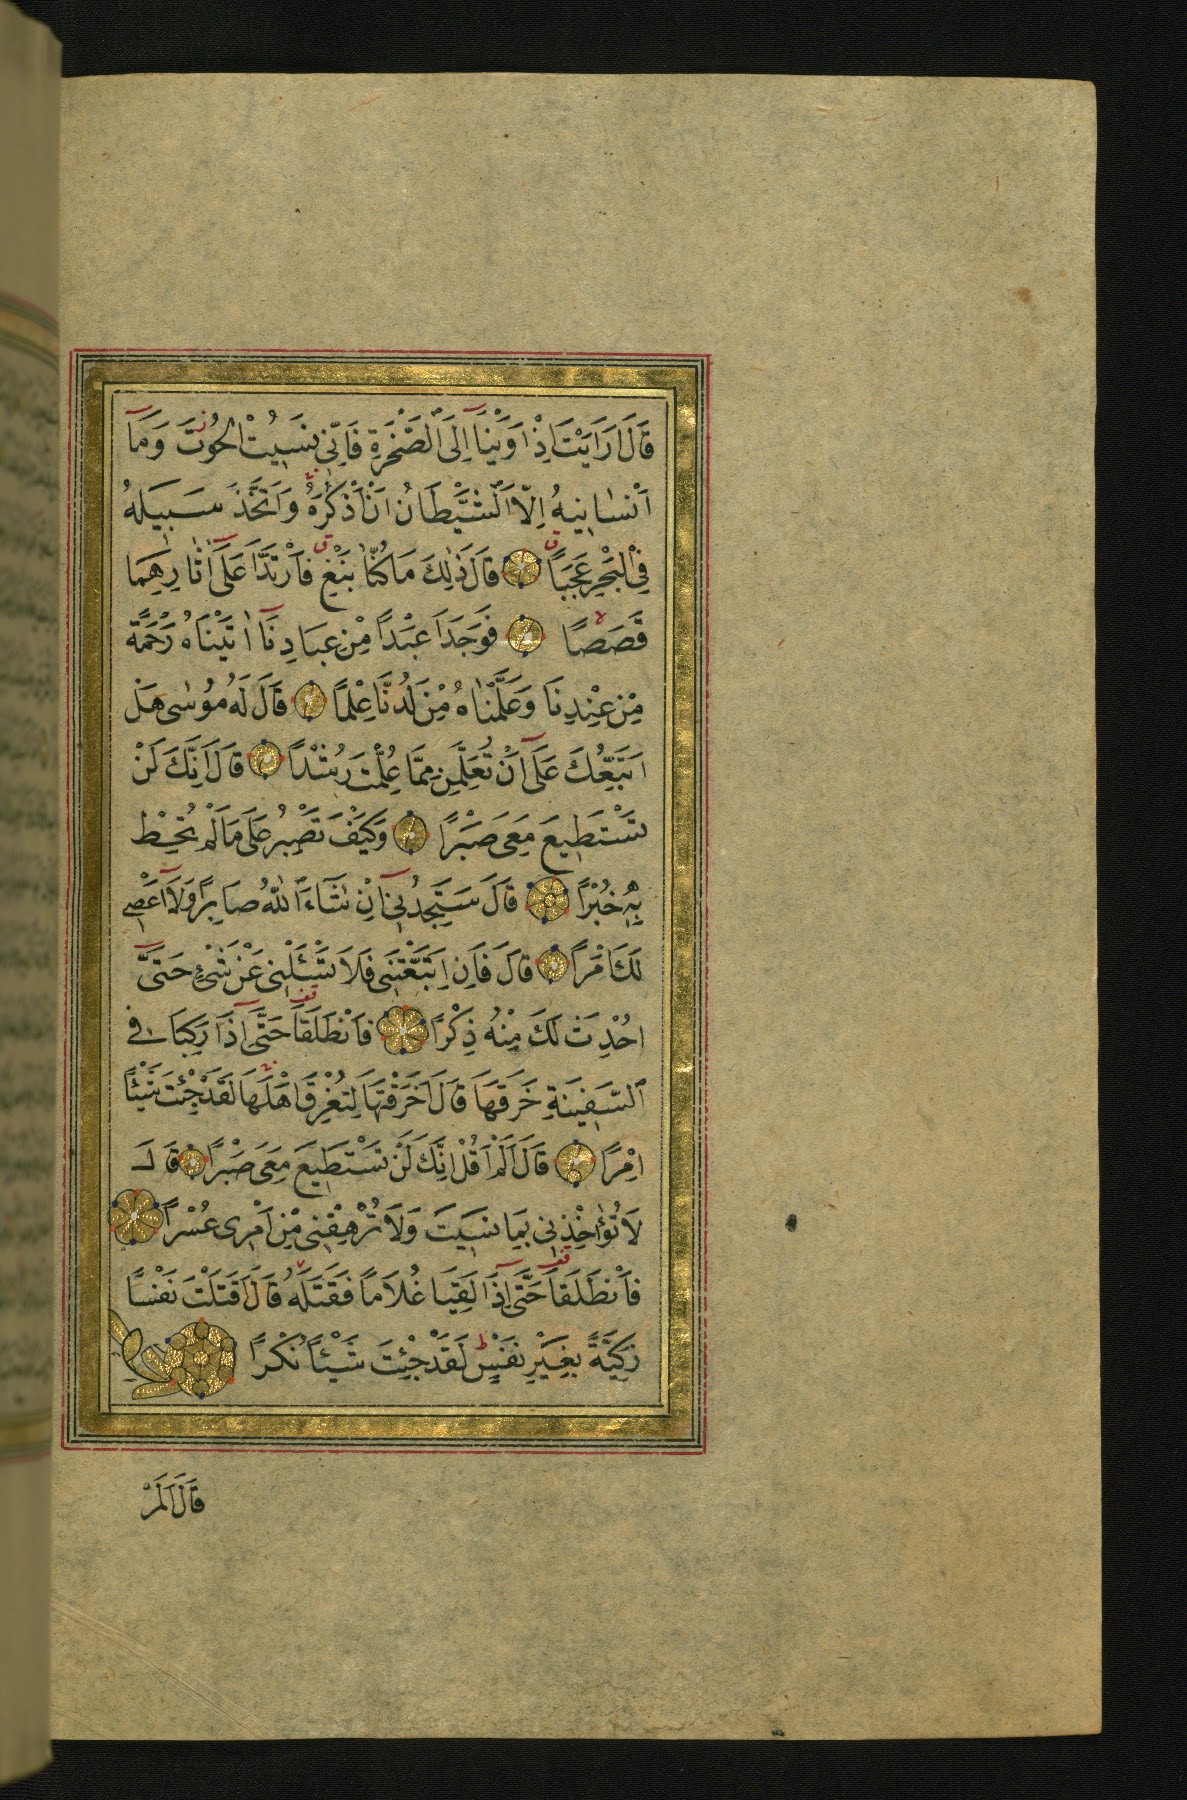 قَالَ اَرَاَيْتَ اِذْ اَوَيْنَٓا اِلَى الصَّخْرَةِ فَاِنّٖى نَسٖيتُ الْحُوتَ وَمَٓا
اَنْسَانٖيهُ اِلَّا الشَّيْطَانُ اَنْ اَذْكُرَهُ وَاتَّخَذَ سَبٖيلَهُ
فِى الْبَحْرِ عَجَبًا قَالَ ذٰلِكَ مَا كُنَّا نَبْغِ فَارْتَدَّا عَلٰٓى اٰثَارِهِمَا
قَصَصًا فَوَجَدَا عَبْدًا مِنْ عِبَادِنَٓا اٰتَيْنَاهُ رَحْمَةً
مِنْ عِنْدِنَا وَعَلَّمْنَاهُ مِنْ لَدُنَّا عِلْمًا قَالَ لَهُ مُوسٰى هَلْ
اَتَّبِعُكَ عَلٰٓى اَنْ تُعَلِّمَنِ مِمَّا عُلِّمْتَ رُشْدًا قَالَ اِنَّكَ لَنْ
تَسْتَطٖيعَ مَعِىَ صَبْرًا وَكَيْفَ تَصْبِرُ عَلٰى مَا لَمْ تُحِطْ
بِهٖ خُبْرًا قَالَ سَتَجِدُنٖٓى اِنْ شَٓاءَ اللّٰهُ صَابِرًا وَلَٓا اَعْصٖى
لَكَ اَمْرًا قَالَ فَاِنِ اتَّبَعْتَنٖى فَلَا تَسْـَٔلْنٖى عَنْ شَىْءٍ حَتّٰٓى
اُحْدِثَ لَكَ مِنْهُ ذِكْرًا فَانْطَلَقَا حَتّٰٓى اِذَا رَكِبَا فِى
السَّفٖينَةِ خَرَقَهَا قَالَ اَخَرَقْتَهَا لِتُغْرِقَ اَهْلَهَا لَقَدْ جِئْتَ شَيْئًا
اِمْرًا قَالَ اَلَمْ اَقُلْ اِنَّكَ لَنْ تَسْتَطٖيعَ مَعِىَ صَبْرًا قَالَ
لَا تُؤَاخِذْنٖى بِمَا نَسٖيتُ وَلَا تُرْهِقْنٖى مِنْ اَمْرٖى عُسْرًا
فَانْطَلَقَا حَتّٰٓى اِذَا لَقِيَا غُلَامًا فَقَتَلَهُ قَالَ اَقَتَلْتَ نَفْسًا
زَكِيَّةً بِغَيْرِ نَفْسٍ لَقَدْ جِئْتَ شَيْئًا نُكْرًا
قَالَ اَلَمْ